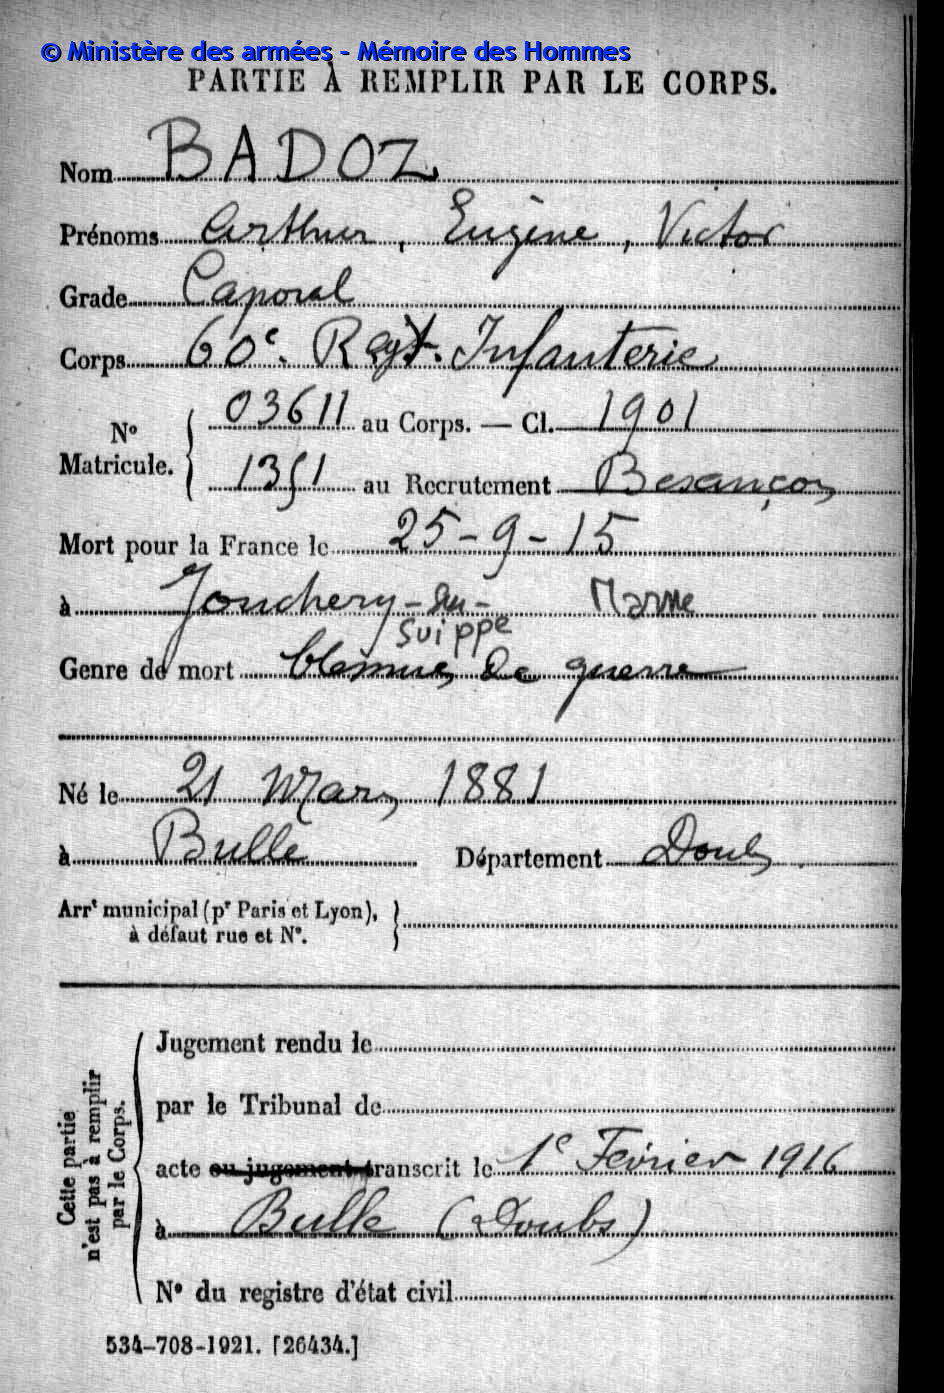 © Ministère des armées - Mémoire des Hommes
PARTIE À REMPLIR PAR LE CORPS.
Nom BADOZ
Prénoms Arthur, Eugène, Victor
Grade Caporal
Corps 60e. Regt. Infanterie
No Matricule. { 03611 au Corps. — Cl. 1901
1351 au Recrutement Besançon
Mort pour la France le 25-9-15
à Jonchery-su- Marne
Suippe
Genre de mort blessures de guerre
Né le 21 Mars 1881
à Bulle Département Doubs
Arrt municipal (pr Paris et Lyon), }
à défaut rue et No.
Cette partie n'est pas à remplir par le Corps.
Jugement rendu le
par le Tribunal de
acte ou jugement transcrit le 1e Février 1916
à Bulle (Doubs)
No du registre d'état civil
534-708-1921. [26434.]